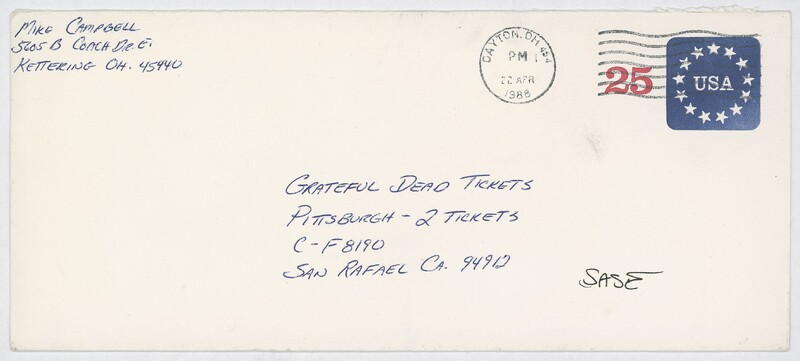 Mike Campbell
5605 B Coach Dr. E.
Kettering OH. 45440
DAYTON, OH 454
PM
22 APR
1988
25
USA
Grateful Dead Tickets
Pittsburgh - 2 Tickets
C-F 8190
San Rafael Ca. 94912
SASE